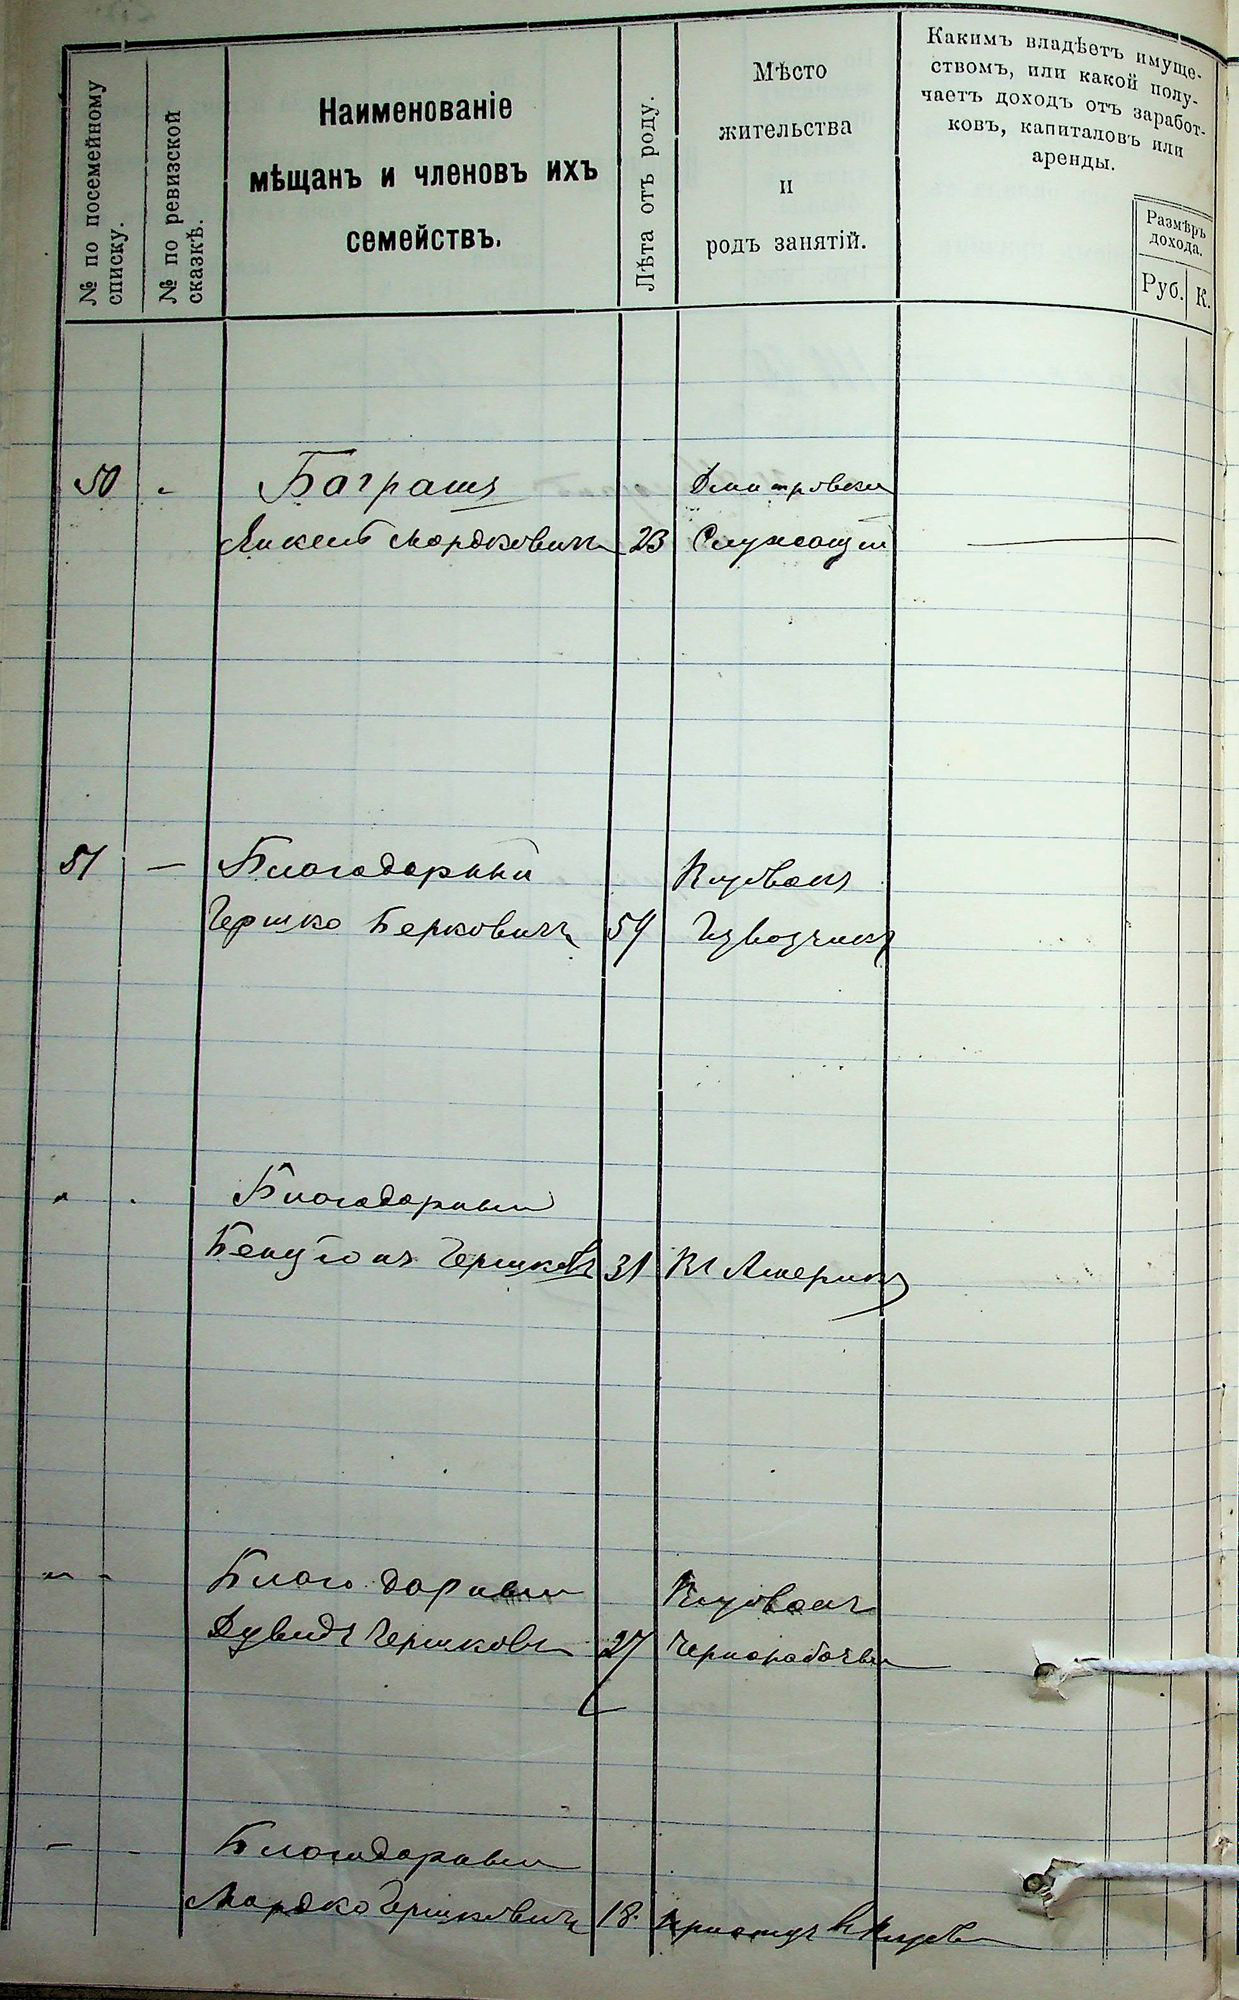 № по посемейному
списку.
№ по ревизской
сказкѣ.
Наименованіе
мѣщанъ и членовъ ихъ
семействъ.
Лѣта отъ роду.
Мѣсто
жительства
и
родъ занятій.
Какимъ владѣетъ имуще-
ствомъ, или какой полу-
чаетъ доходъ отъ заработ-
ковъ, капиталовъ или
аренды.
Размѣръ
дохода.
Руб. К.
50 Баграшъ
Янкель Мордковичъ 23 Служащій
51 — Благодарный
Гершко Берковичъ 54 Извозчикъ
Благодарный
Гершков 31 Въ Америкѣ
Благодарный
Дувидъ Гершков 27 Чернорабочій
Благодарный
Мордко Гершковичъ 18